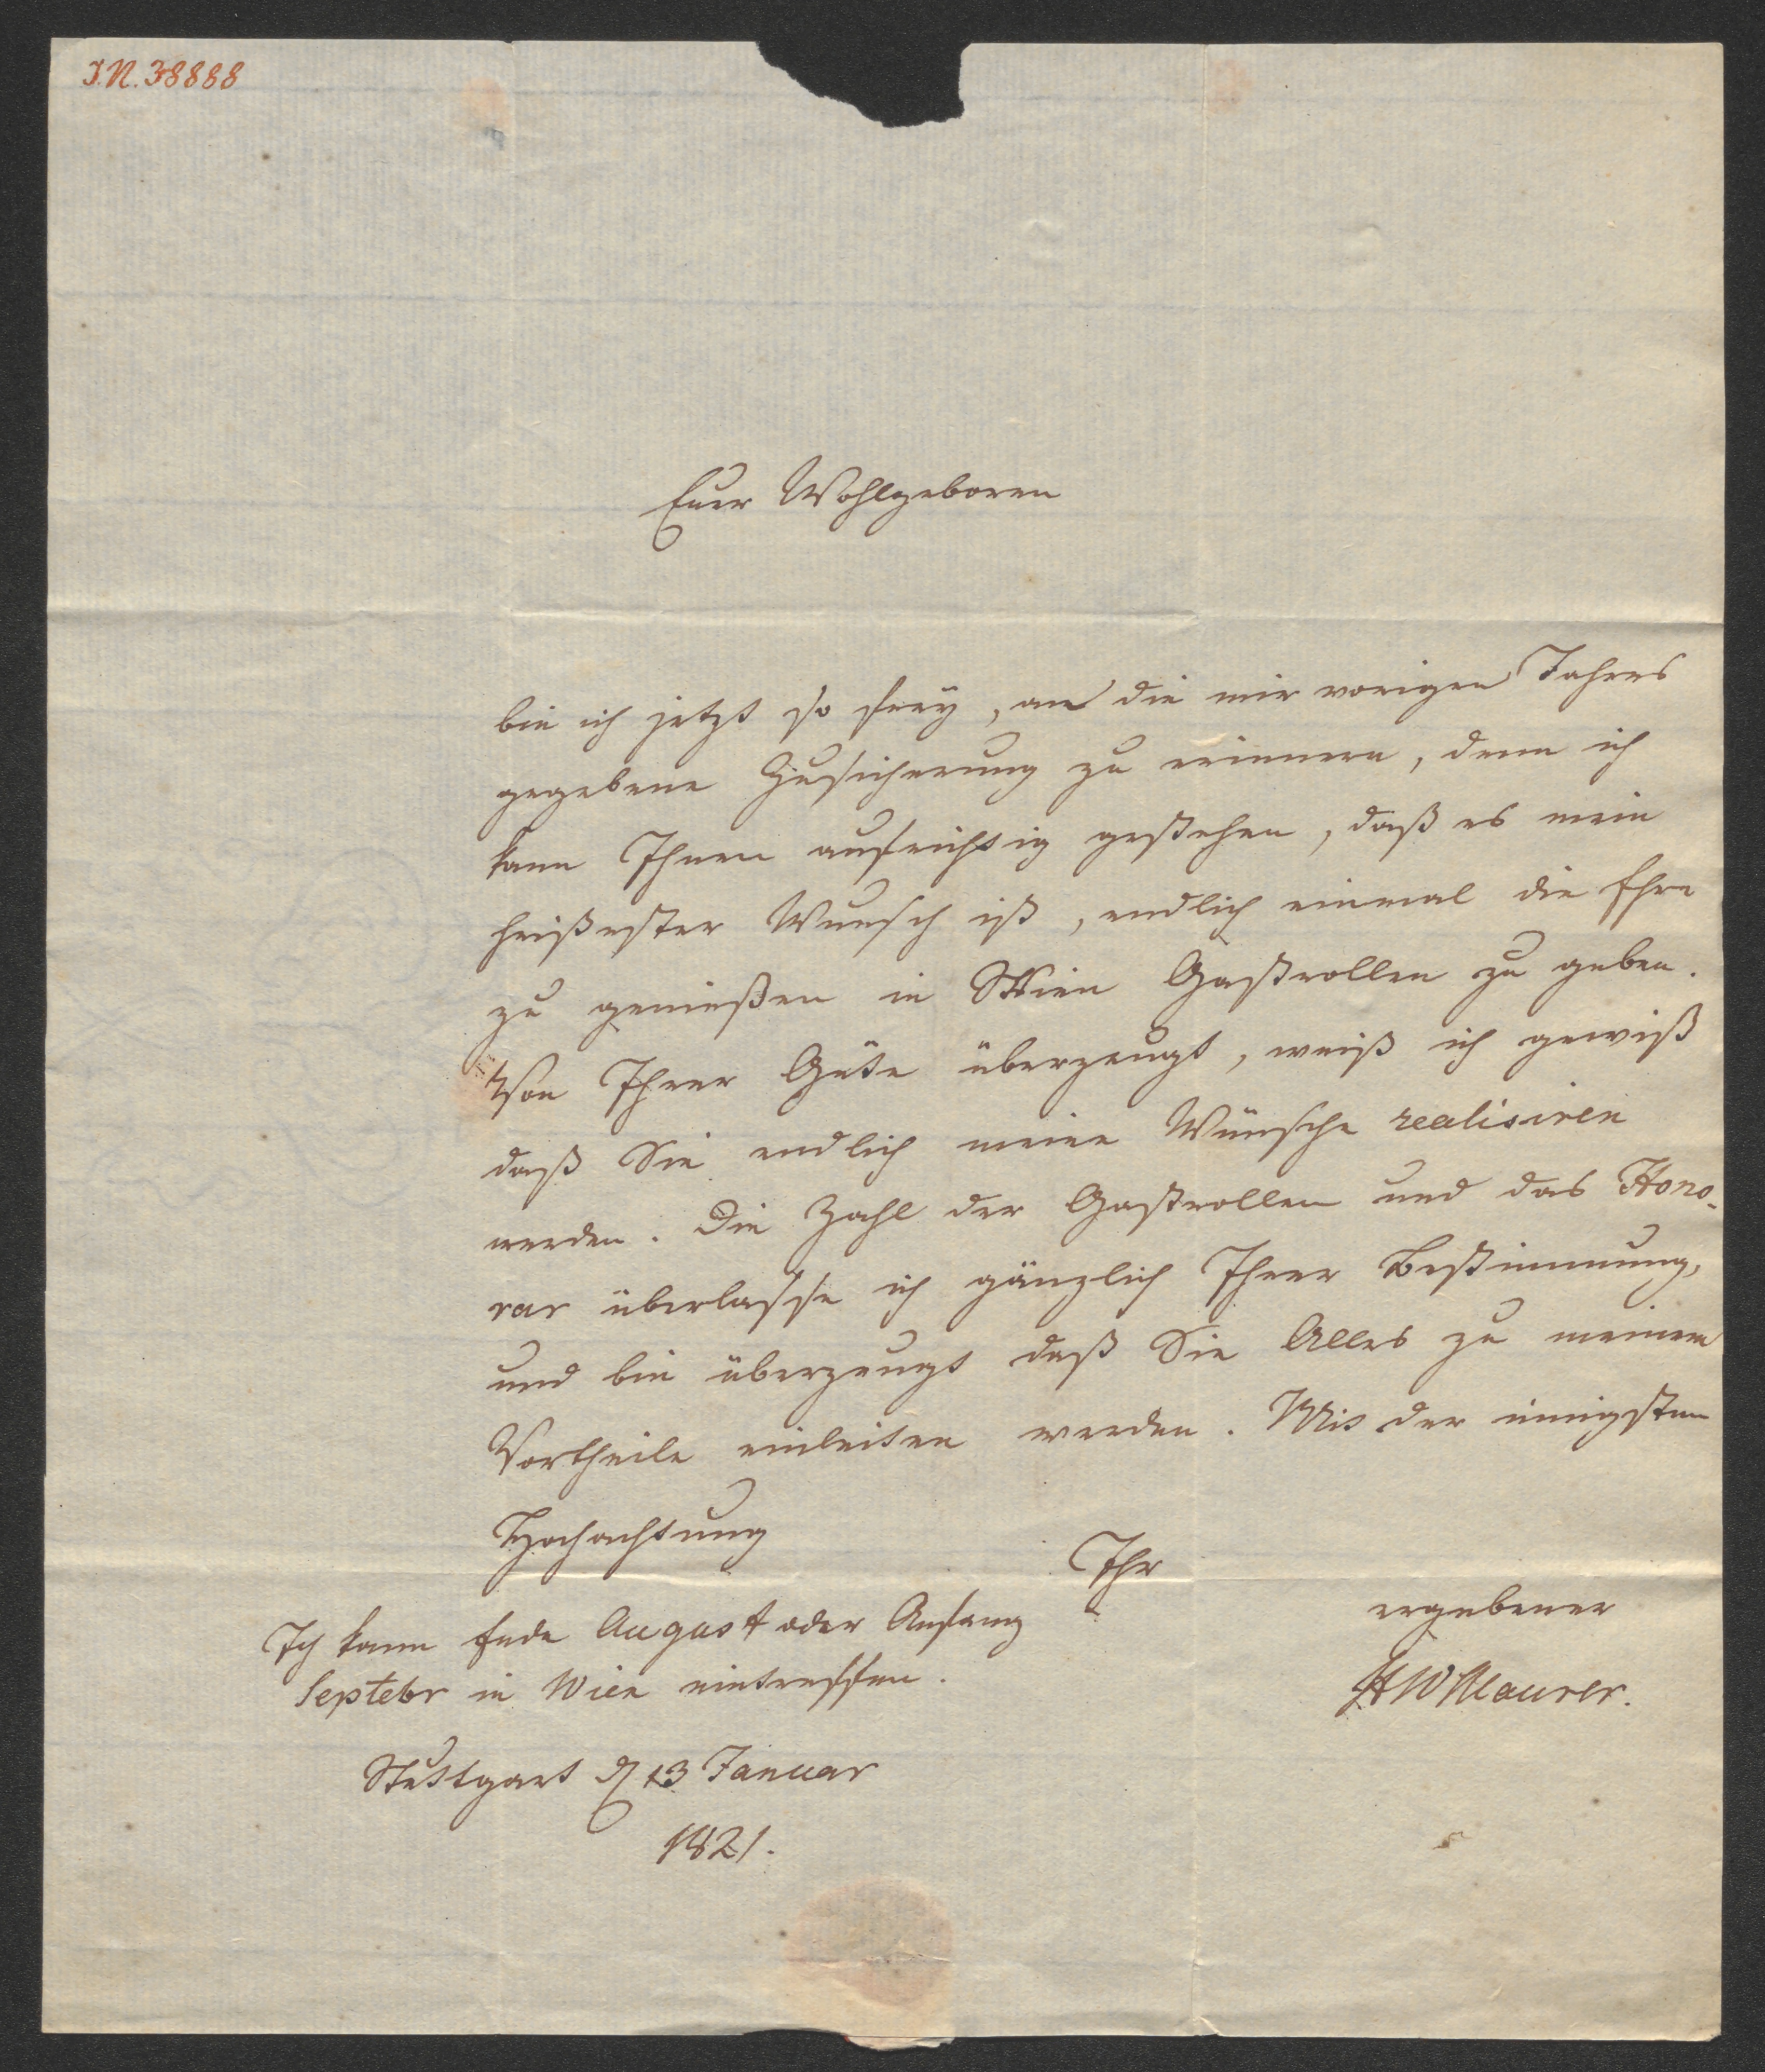 I.N. 38888
Euer Wohlgeboren
bin ich jetzt so frey, an die mir vorigen Jahres
gegebene Zusicherung zu erinnern, denn ich
kann Ihnen aufrichtig gestehen, daß es mein
heißester Wunsch ist, endlich einmal die Ehre
zu genießen in Wien Gastrollen zu geben.
Von Ihrer Güte überzeugt, weiß ich gewiß
daß Sie endlich meine Wünsche realisiren
werden. Die Zahl der Gastrollen und das Hono-
rar überlasse ich gänzlich Ihrer Bestimmung,
und bin überzeugt daß Sie Alles zu meinem
Vortheile einleiten werden. Mit der innigsten
Hochachtung
Ihr
ergebener
HWMaurer.
Ich kann Ende August oder Anfang
Septebr in Wien eintreffen.
Stuttgart d 13 Januar
1821.